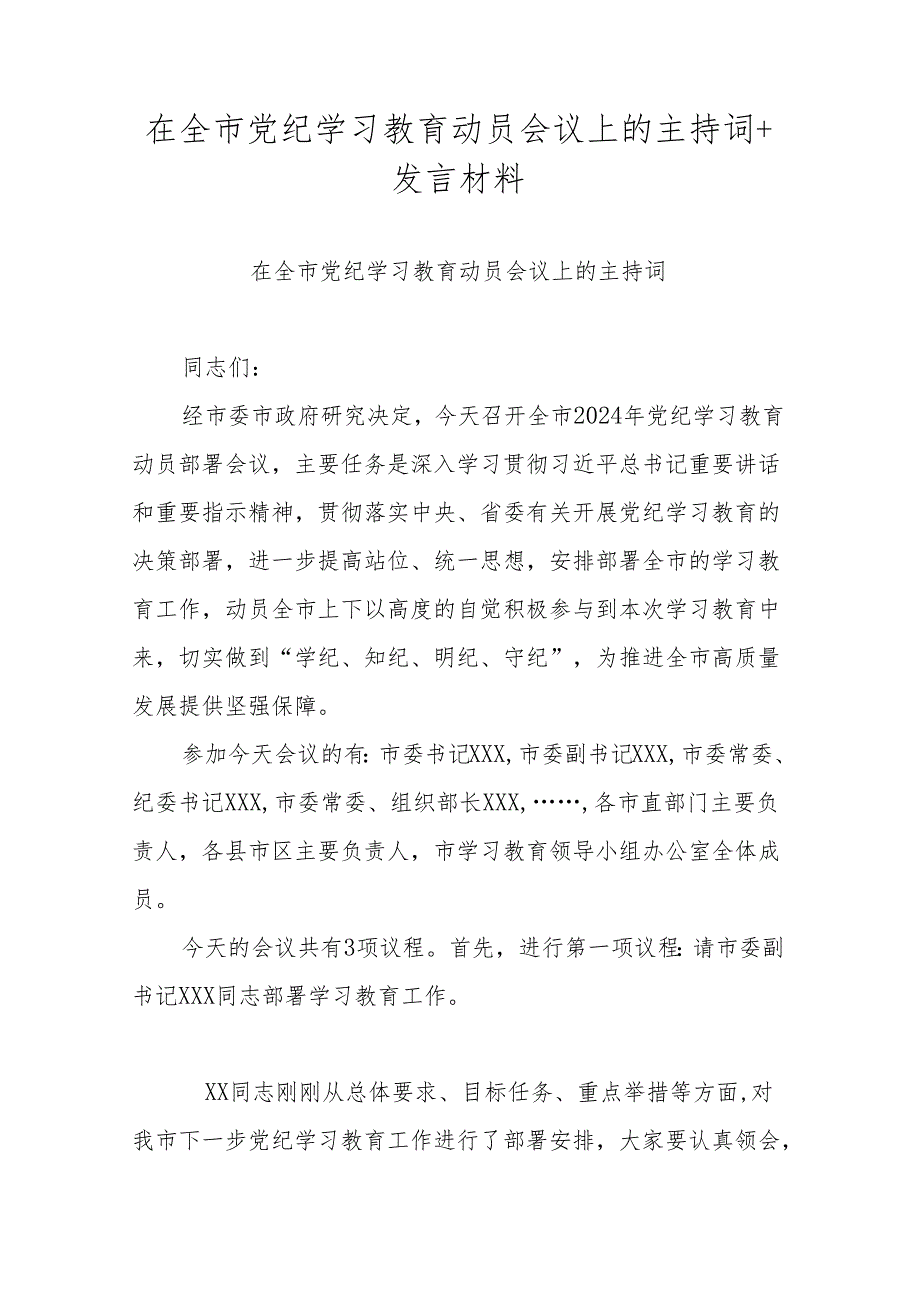 在全市党纪学习教育动员会议上的主持词+
发言材料
在全市党纪学习教育动员会议上的主持词
同志们：
经市委市政府研究决定，今天召开全市2024年党纪学习教育
动员部署会议，主要任务是深入学习贯彻习近平总书记重要讲话
和重要指示精神，贯彻落实中央、省委有关开展党纪学习教育的
决策部署，进一步提高站位、统一思想，安排部署全市的学习教
育工作，动员全市上下以高度的自觉积极参与到本次学习教育中
来，切实做到“学纪、知纪、明纪、守纪”，为推进全市高质量
发展提供坚强保障。
参加今天会议的有：市委书记XXX,市委副书记XXX,市委常委、
纪委书记XXX,市委常委、组织部长XXX,……,各市直部门主要负
责人，各县市区主要负责人，市学习教育领导小组办公室全体成
员。
今天的会议共有3项议程。首先，进行第一项议程：请市委副
书记XXX同志部署学习教育工作。
XX同志刚刚从总体要求、目标任务、重点举措等方面,对
我市下一步党纪学习教育工作进行了部署安排，大家要认真领会，